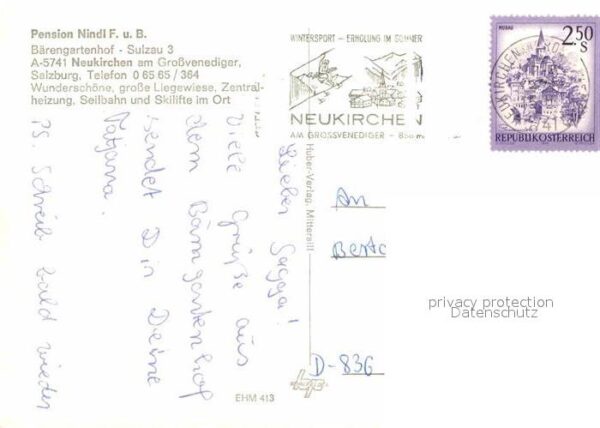 Pension Nindl F. u. B.
Bärengartenhof - Sulzau 3
A-5741 Neukirchen am Großvenediger,
Salzburg, Telefon 0 65 65 / 364
Wunderschöne, große Liegewiese, Zentral-
heizung, Seilbahn und Skilifte im Ort
WINTERSPORT - ERHOLUNG IM SOMMER
NEUKIRCHEN
AM GROSSVENEDIGER - 
2.50
S
MURAU
REPUBLIK ÖSTERREICH
Lieber
Viele Grüße aus
dem Bärngartenhof
sendet Dir Deine
Tatjana.
PS. Schreib bald wieder
Huber-Verlag, Mittersill
An
D-836
EHM 413
privacy protection
Datenschutz